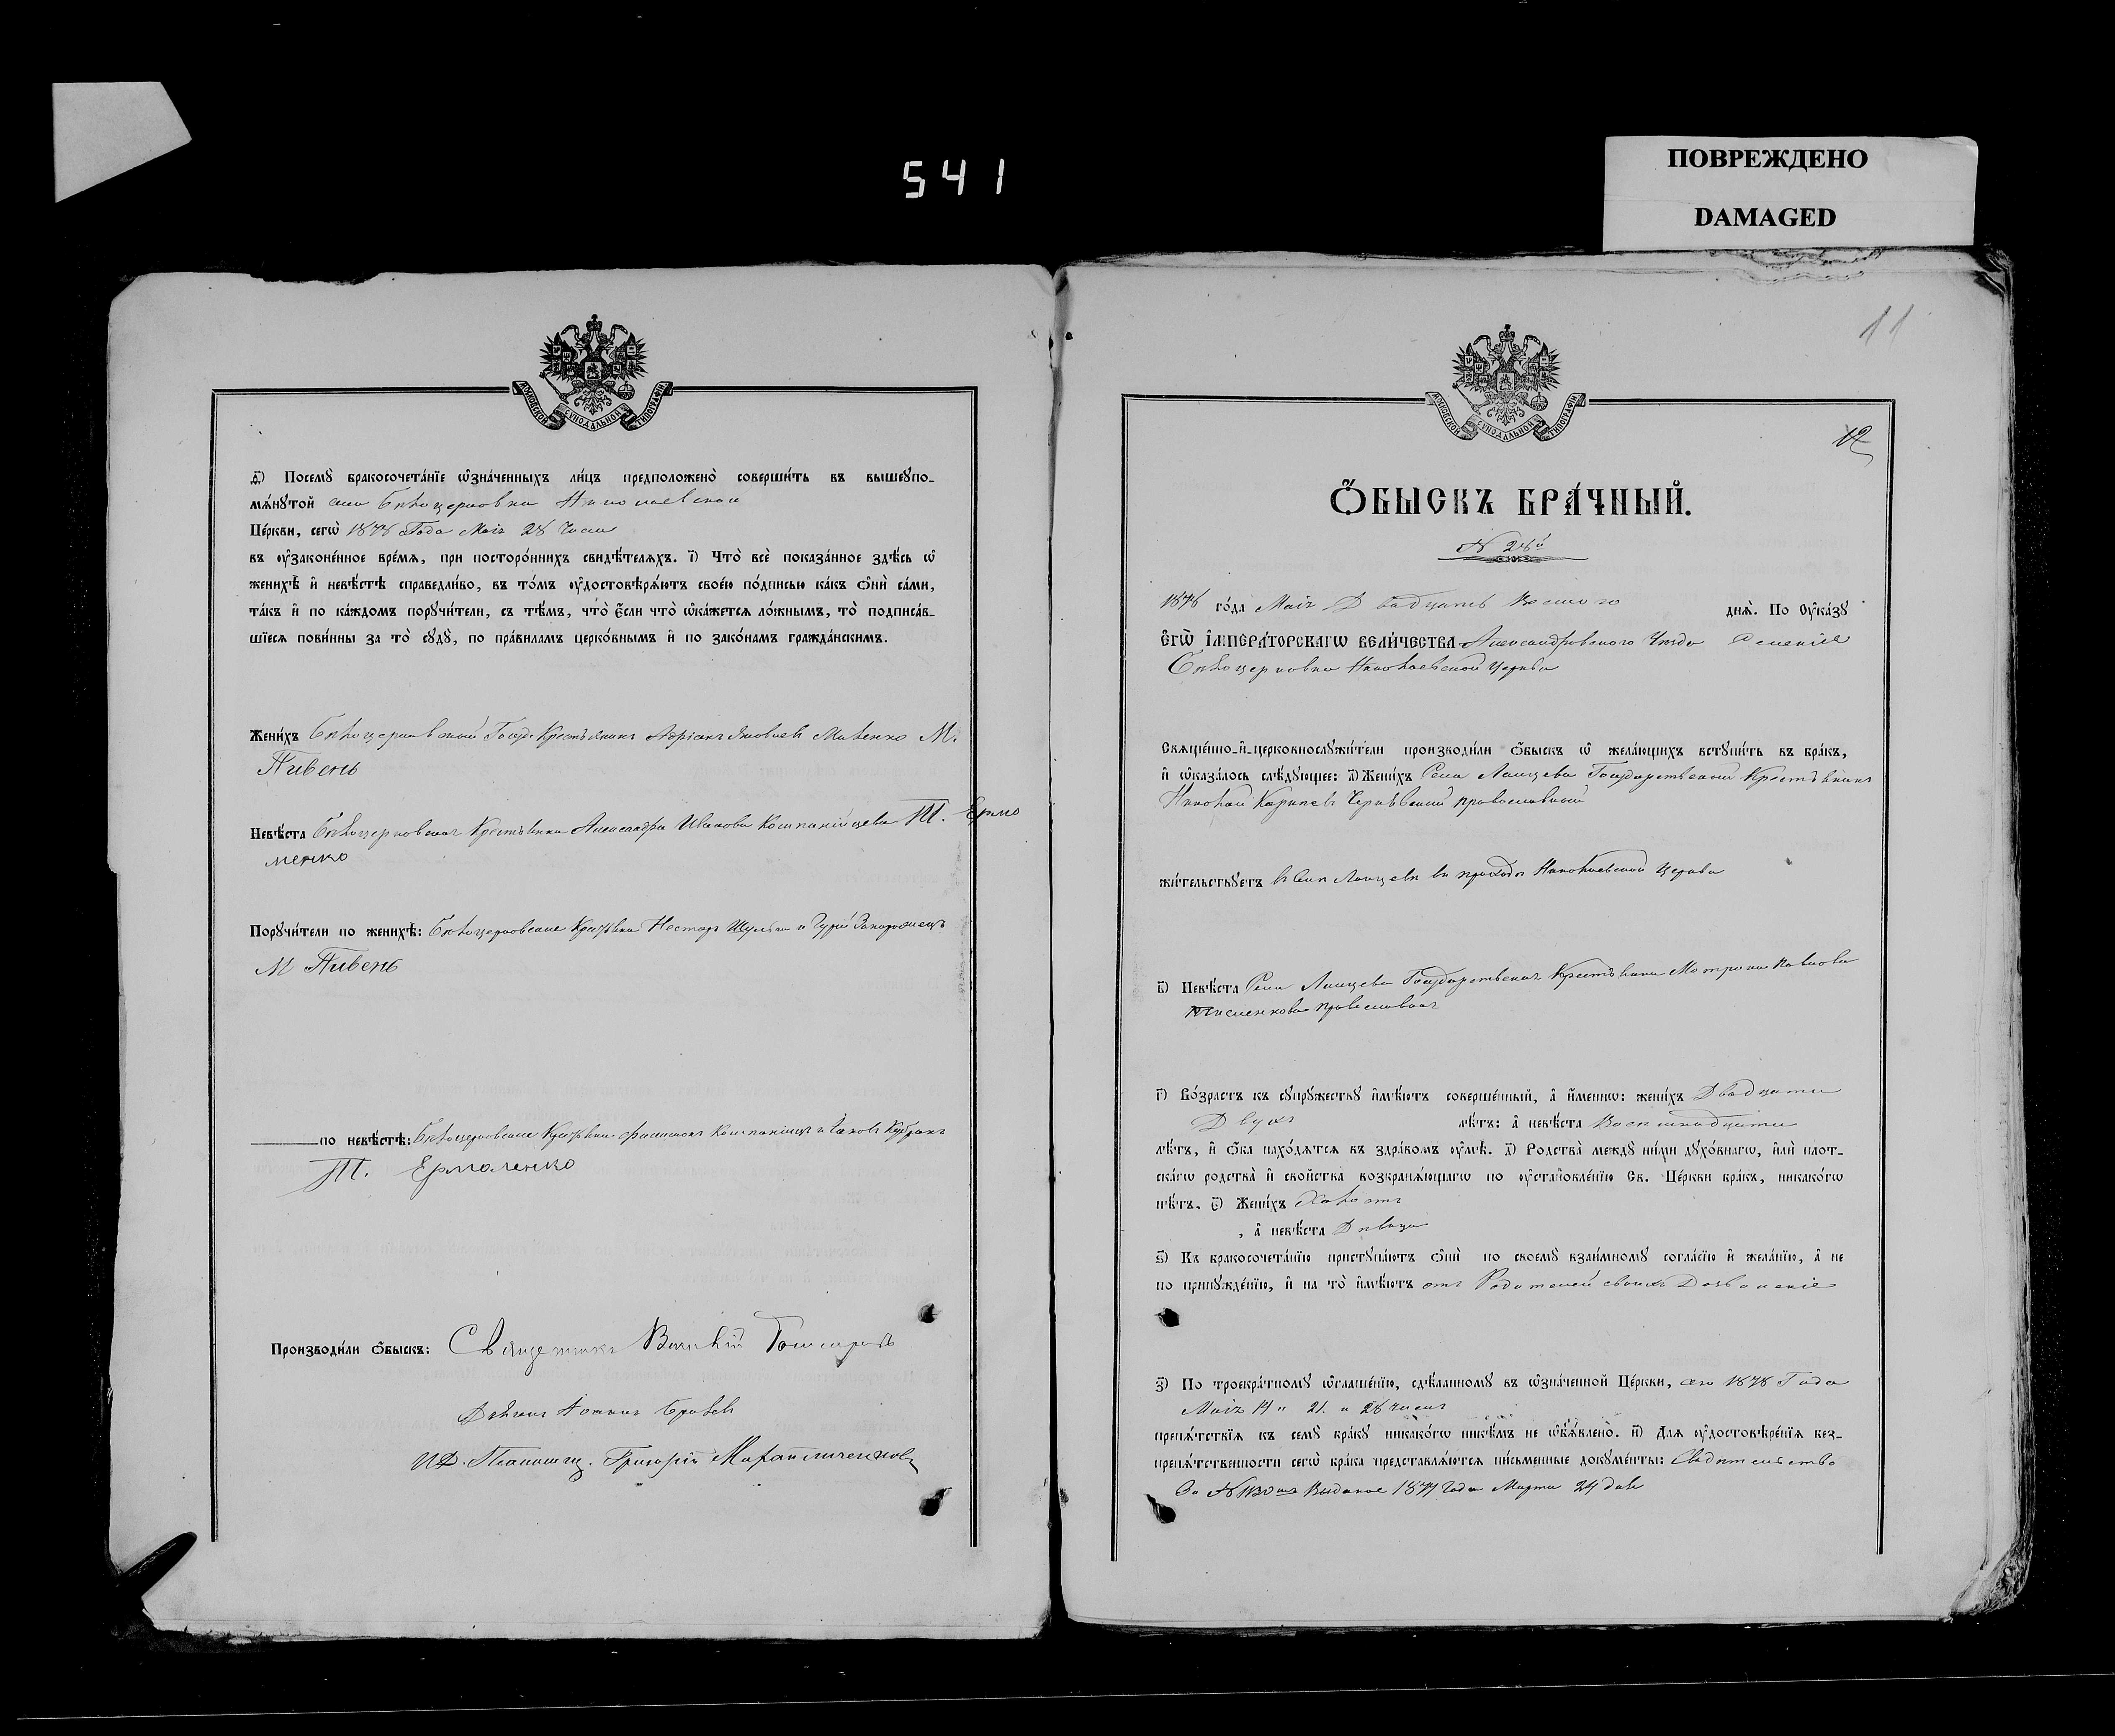 541
ПОВРЕЖДЕНО
DAMAGED
МОСКОВСКОЙ СѴНОДАЛЬНОЙ ТИПОГРАФІИ
Посемꙋ̀ бракосочета́нїе ѡ҆зна́ченныхъ ли́цъ предположено̀ соверши́ть въ вышеꙋпо-
мѧ́нꙋтой села Бѣлоцерковки Николаевской
Це́ркви, сегѡ̀ 1878 Года Маія 28 Числа
въ ᲂу҆законе́нное вре́мѧ, при посторо́ннихъ свидѣ́телѧхъ. і҃) Что̀ всѐ показа́нное здѣ́сь ѡ҆
женихѣ̀ и҆ невѣ́стѣ справедли́во, въ то́мъ ᲂу҆достовѣрѧ́ютъ свое́ю по́дписью ка́къ ѻ҆нѝ са́ми,
та́къ и҆ по ка́ждомъ порꙋчи́тели, съ тѣ́мъ, что̀ є҆́сли что̀ ѡ҆ка́жетсѧ ло́жнымъ, то̀ подписа́в-
шїесѧ пови́нны за то̀ сꙋдꙋ̀, по пра́виламъ церко́внымъ и҆ по зако́намъ гражда́нскимъ.
Жени́хъ Бѣлоцерковской Госуд. Крестьянинъ Адріанъ Яковлевъ М.
Пивень
Невѣ́ста Бѣлоцерковская Крестьянка Александра Иванова Компанійцева Т. Ермо
ленко
Порꙋчи́тели по женихѣ̀: Бѣлоцерковские Крестьяне Несторъ Шульга и Гурій Запорожецъ
М Пивень
по невѣ́стѣ: Бѣлоцерковские Крестьяне Филимонъ Компаніецъ и Яковъ
Т. Ермоленко
Производи́ли ѻ҆́быскъ: Священникъ Василій
Діаконъ
И.Д. Псаломщ. Григорій
11
12
МОСКОВСКОЙ СѴНОДАЛЬНОЙ ТИПОГРАФІИ
Ѻ҆́БЫСКЪ БРА́ЧНЫЙ.
N 28й
1878 го́да Маія Двадцать Восьмого днѧ̀. По Оу҆ка́зꙋ
Є҆ГѠ̀ І҆МПЕРА́ТОРСКАГѠ ВЕЛИ́ЧЕСТВА Александровского Уѣзда селенія
Бѣлоцерковки Николаевской Церкви
Свѧще́нно-и҆-церковнослꙋжи́тели производи́ли ѻ҆́быскъ ѡ҆ жела́ющихъ встꙋпи́ть въ бра́къ,
и҆ ѡ҆каза́лось слѣ́дꙋющее: а҃) Жени́хъ Села Государственный Крестьянинъ
Николай Карповъ православный
жи́тельствꙋетъ въ Селѣ въ приходѣ Николаевской Церкви
в҃) Невѣ́ста Села Государственная Крестьянка Матрона Павлова
православная
г҃) Во́зрастъ къ сꙋпрꙋ́жествꙋ и҆мѣ́ютъ соверше́нный, а҆ и҆́меннѡ: жени́хъ Двадцати
Двухъ лѣ́тъ: а҆ невѣ́ста Восемнадцати
лѣ́тъ, и҆ ѻ҆́ба нахо́дѧтсѧ въ здра́вомъ ᲂу҆мѣ̀. д҃) Родства̀ междꙋ̀ ни́ми дꙋхо́внагѡ, и҆лѝ плот-
ска́гѡ родства̀ и҆ сво́йства возбранѧ́ющагѡ по ᲂу҆становле́нїю Св. Це́ркви бра́къ, никако́гѡ
нѣ́тъ. є҃) Жени́хъ Холостъ
, а҆ невѣ́ста Дѣвица
ѕ҃) Къ бракосочета́нїю пристꙋпа́ютъ ѻ҆нѝ по своемꙋ̀ взаи́мномꙋ согла́сїю и҆ жела́нїю, а҆ не
по принꙋжде́нїю, и҆ на то̀ и҆мѣ́ютъ отъ Родителей своихъ Дозволеніе
з҃) По троекра́тномꙋ ѡ҆глаше́нїю, сдѣ́ланномꙋ въ ѡ҆зна́ченной Це́ркви, сего 1878 Года
Маія 14 21. и 28 числъ
препѧ́тствїѧ къ семꙋ̀ бра́кꙋ никако́гѡ никѣ́мъ не ѡ҆б̾ѧ́влено. и҃) Для ᲂу҆достовѣре́нїѧ без-
препѧ́тственности сегѡ̀ бра́ка представлѧ́ютсѧ пи́сьменные докꙋме́нты: Свидѣтельство
За N Выданое Года Марта 24 дня